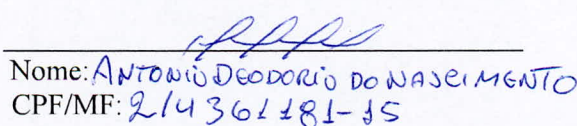 Nome: ANTONIO DEODORIO DO NASCIMENTO
CPF/MF: 214361181-15